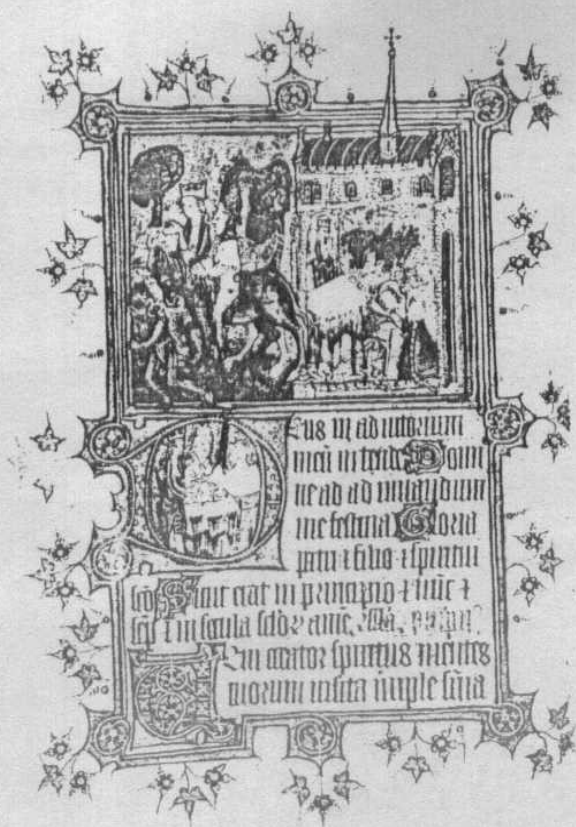 Deus in adiutorium
meū intende Domi
ne ad adiuuandum
me festina Gloria
patri ⁊ filio ⁊ spiritui
scō Sicut erat in principio ⁊ nūc ⁊
⁊ in secula sclōꝝ amē
creator spiritus mentes
tuorum visita imple